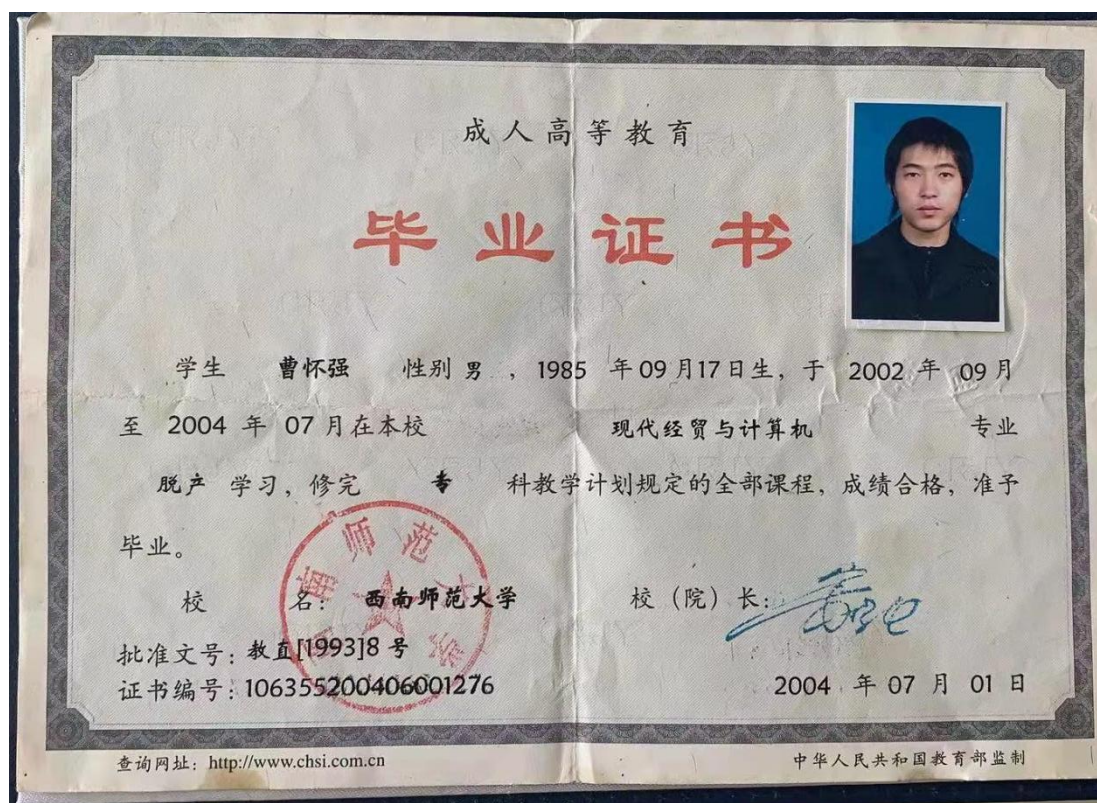 成人高等教育
毕业证书
学生 曹怀强 性别 男 , 1985 年 09 月 17 日生, 于 2002 年 09 月
至 2004 年 07 月在本校 现代经贸与计算机 专业
脱产 学习, 修完 专 科教学计划规定的全部课程, 成绩合格, 准予
毕业。
校 名: 西南师范大学 校(院)长:
批准文号: 教直[1993]8 号
证书编号: 106355200406001276 2004 年 07 月 01 日
查询网址: http://www.chsi.com.cn 中华人民共和国教育部监制